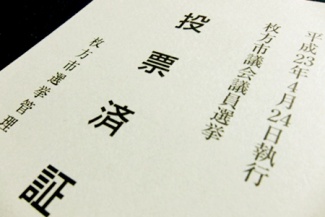 平成23年4月24日執行
枚方市議会議員選挙
投票済証
枚方市選挙管理